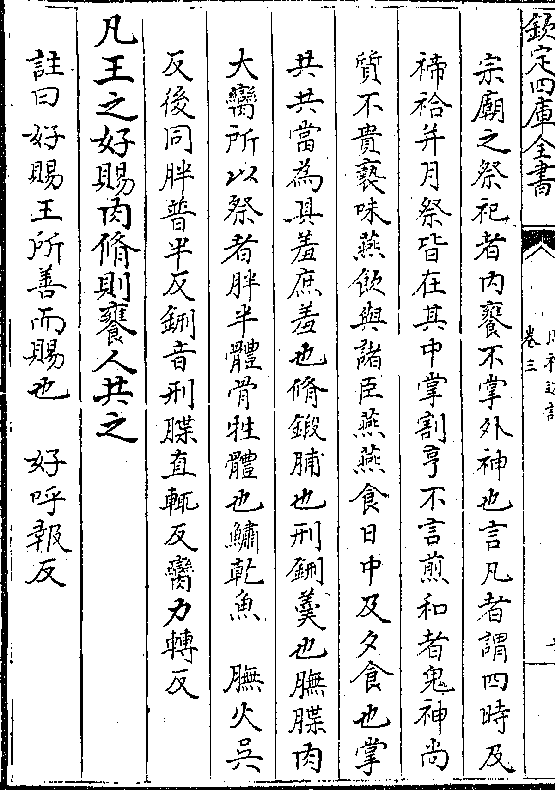 欽定四庫全書
卷三
宗廟之祭祀者內饔不掌外神也言凡者謂四時及
禘祫并月祭皆在其中掌割亨不言煎和者鬼神尚
質不貴䙝味燕飲與諸臣燕燕食日中及夕食也掌
共共當為具羞庶羞也脩鍛脯也刑鉶羮也膴牒肉
大臠所以祭者胖半體骨牲體也鱐乾魚　膴火吳
反後同胖普半反鉶音刑牒直輒反臠力轉反
凡王之好賜肉脩則饔人共之
註曰好賜王所善而賜也　好呼報反